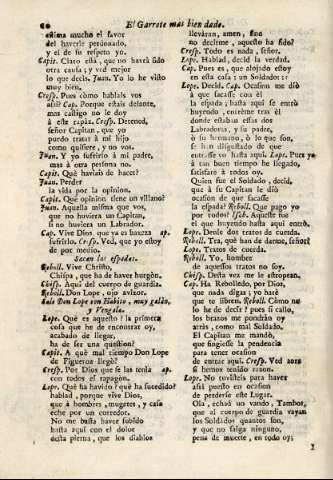 El Garrote mas bien dado.
estima mucho el favor
del haverle perdonado,
y el de su respeto yo.
Capit. Claro està, que no havrà sido
otra causa; y ved mejor
lo que decis. Juan. Yo lo he visto
muy bien.
Cresp. Pues como hablais vos
assi? Cap. Porque estais delante,
mas castigo no le doy
à este rapàz. Cresp. Detened,
señor Capitan, que yo
puedo tratar à mi hijo
como quisiere, y no vos.
Juan. Y yo sufrirlo à mi padre,
mas à otra persona no.
Capit. Què haviais de hacer?
Juan. Perder
la vida por la opinion.
Capit. Què opinion tiene un villano?
Juan. Aquella misma que vos,
que no huviera un Capitan,
si no huviera un Labrador.
Cap. Vive Dios, que ya es baxeza ap.
sufrirlo. Cresp. Ved, que yo estoy
de por medio.
Sacan las espadas.
Reboll. Vive Christo,
Chispa, que ha de haver hurgòn.
Chisp. Aqui del cuerpo de guardia.
Reboll. Don Lope, ojo avizor.
Sale Don Lope con Habito, muy galàn,
y Vengala.
Lope. Què es aquesto? la primera
cosa que he de encontrar oy,
acabado de llegar,
ha de ser una question?
Capit. A què mal tiempo Don Lope
de Figueroa llegò!
Cresp. Por Dios que se las tenia ap.
con todos el rapagòn.
Lop. Què ha havido? què ha sucedido?
hablad, porque vive Dios,
que à hombres, mugeres, y casa
eche por un corredor.
No me basta haver subido
hasta aqui con el dolor
desta pierna, que los diablos
llevàran, amen, sino
no decirme, aquesto ha sido?
Cresp. Todo es nada, señor.
Lope. Hablad, decid la verdad.
Cap. Pues es, que alojado estoy
en esta casa: un Soldado::
Lope. Decid. Cap. Ocasion me diò
à que sacasse con èl
la espada; hasta aqui se entrò
huyendo, entrème tras èl
donde estaban essas dos
Labradoras, y su padre,
ò su hermano, ò lo que son,
se han disgustado de que
entrasse hasta aqui. Lope. Pues yo
à tan buen tiempo he llegado,
satisfarè à todos oy.
Quien fue el Soldado, decid,
que à su Capitan le diò
ocasion de que sacasse
la espada? Reboll. Que pago yo
por todos! Isab. Aqueste fue
el que huyendo hasta aqui entrò.
Lope. Denle dos tratos de cuerda.
Reboll. Tra, què han de darme, señor?
Lope. Tratos de cuerda.
Reboll. Yo, hombre
de aquessos tratos no soy.
Chisp. Desta vez me le estropean.
Cap. Ha Rebolledo, por Dios,
que nada digas; yo harè
que te libren. Reboll. Còmo no
lo he de decir? pues si callo,
los brazos me pondràn oy
atràs, como mal Soldado.
El Capitan me mandò,
que fingiesse la pendencia
para tener ocasion
de entrar aqui. Cresp. Ved aora
si hemos tenido razon.
Lope. No tuvisteis para haver
assi puesto en ocasion
de perderse este Lugar.
Ola, echad un vando, Tambor,
que al cuerpo de guardia vayan
los Soldados quantos son,
y que no salga ninguno,
pena de muerte, en todo oy;